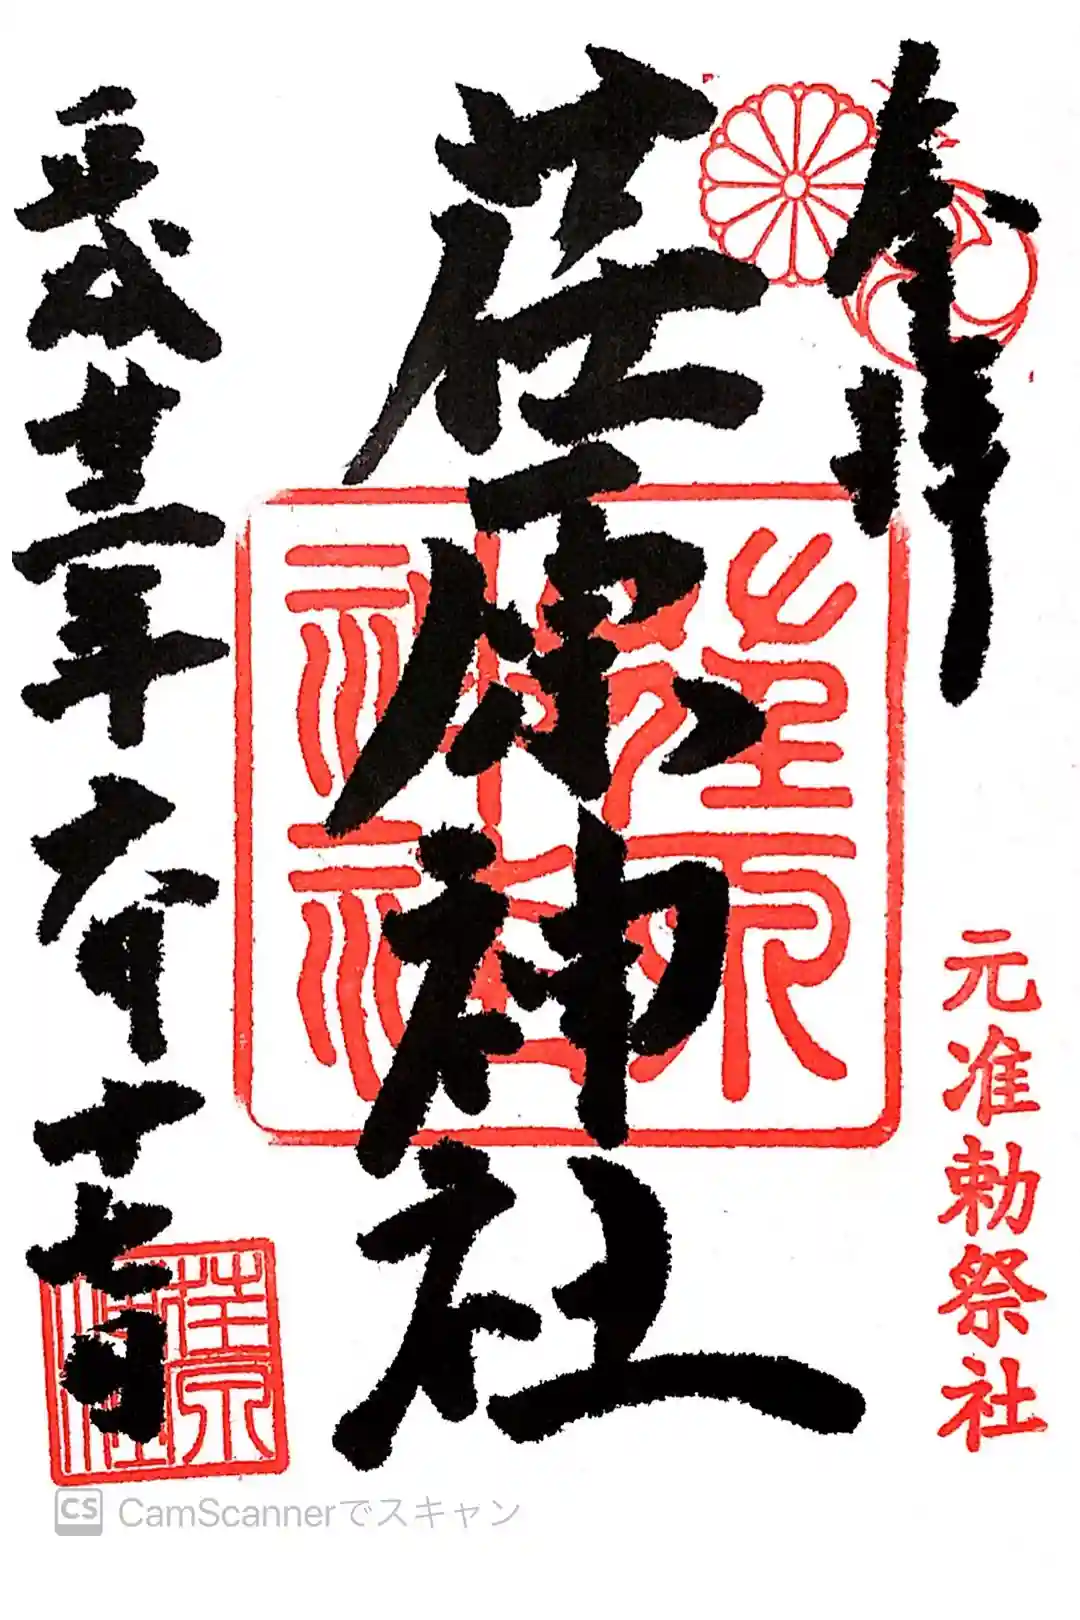 奉拝
元准勅祭社
荏原神社
荏原神社
平成廿三年六月十七日
CS CamScannerでスキャン